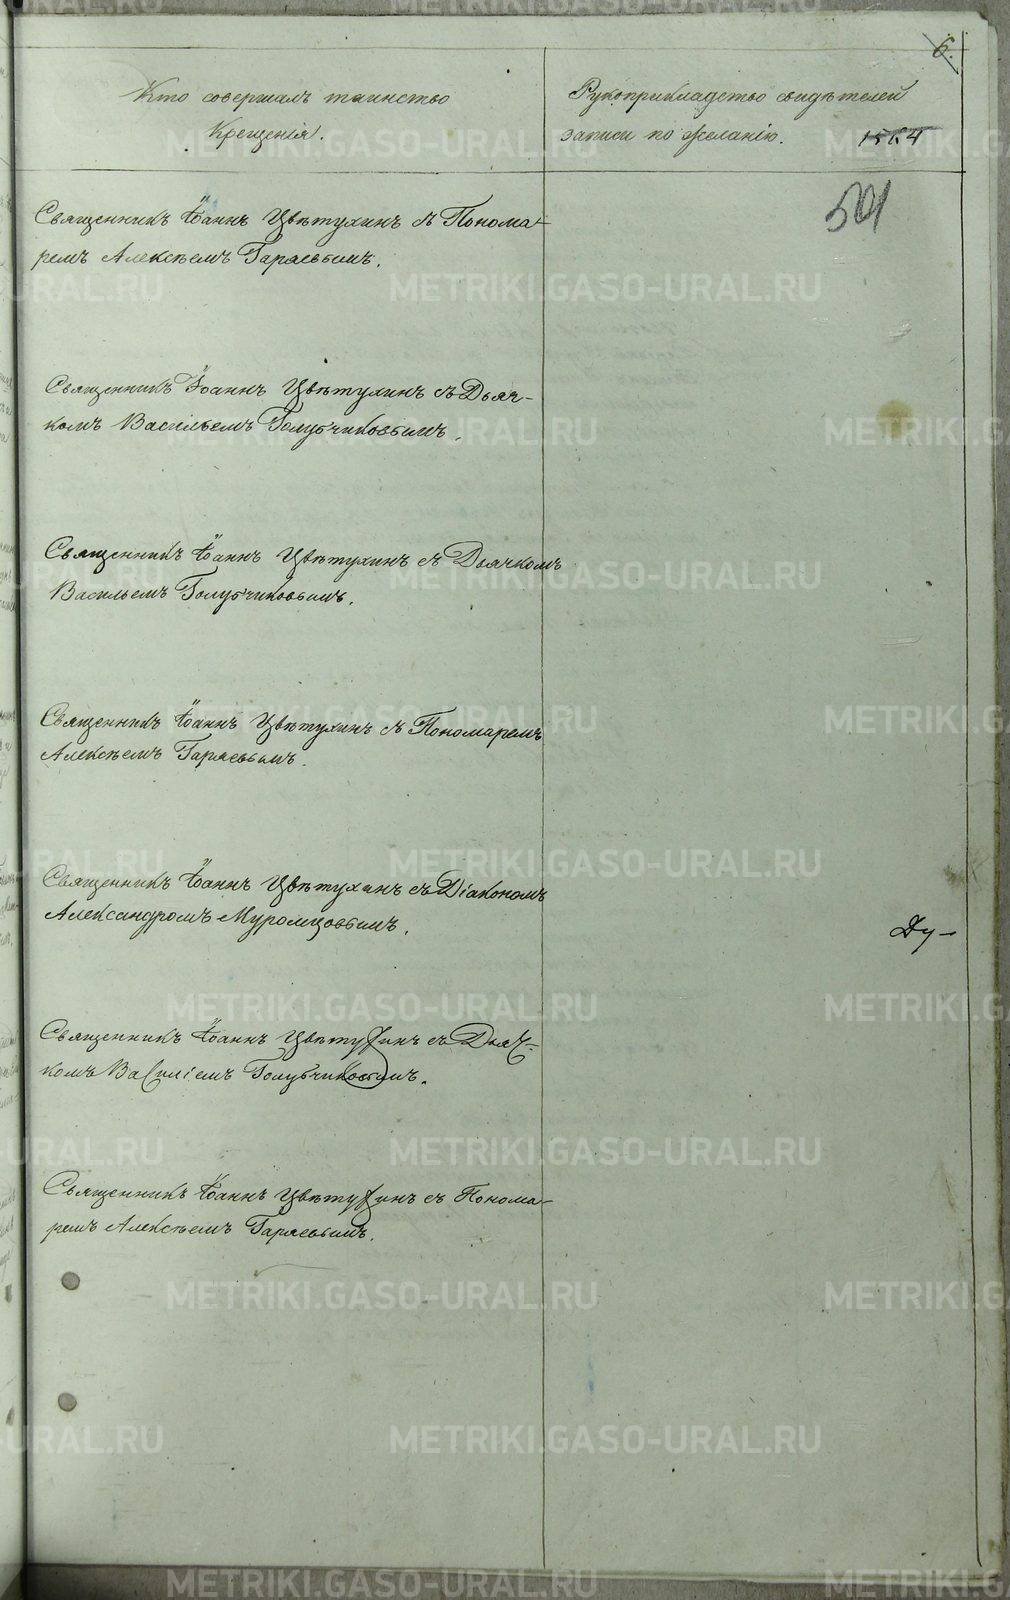 6.
Кто совершалъ таинство
Крещенія.
Рукоприкладство свидѣтелей
записи по желанію.
1564
501
Священникъ Іоаннъ Цвѣтухинъ съ Понома-
ремъ Алексѣемъ Гаряевымъ.
Священникъ Іоаннъ Цвѣтухинъ съ Дьяч-
комъ Васильемъ Голубчиковымъ.
Священникъ Іоаннъ Цвѣтухинъ съ Дьячкомъ
Васильемъ Голубчиковымъ.
Священникъ Іоаннъ Цвѣтухинъ съ Пономаремъ
Алексѣемъ Гаряевымъ.
Священникъ Іоаннъ Цвѣтухинъ съ Діакономъ
Александромъ Муромцовымъ.
Священникъ Іоаннъ Цвѣтухинъ съ Дьяч-
комъ Василіемъ Голубчиковымъ.
Священникъ Іоаннъ Цвѣтухинъ съ Понома-
ремъ Алексѣемъ Гаряевымъ.
METRIKI.GASO-URAL.RU